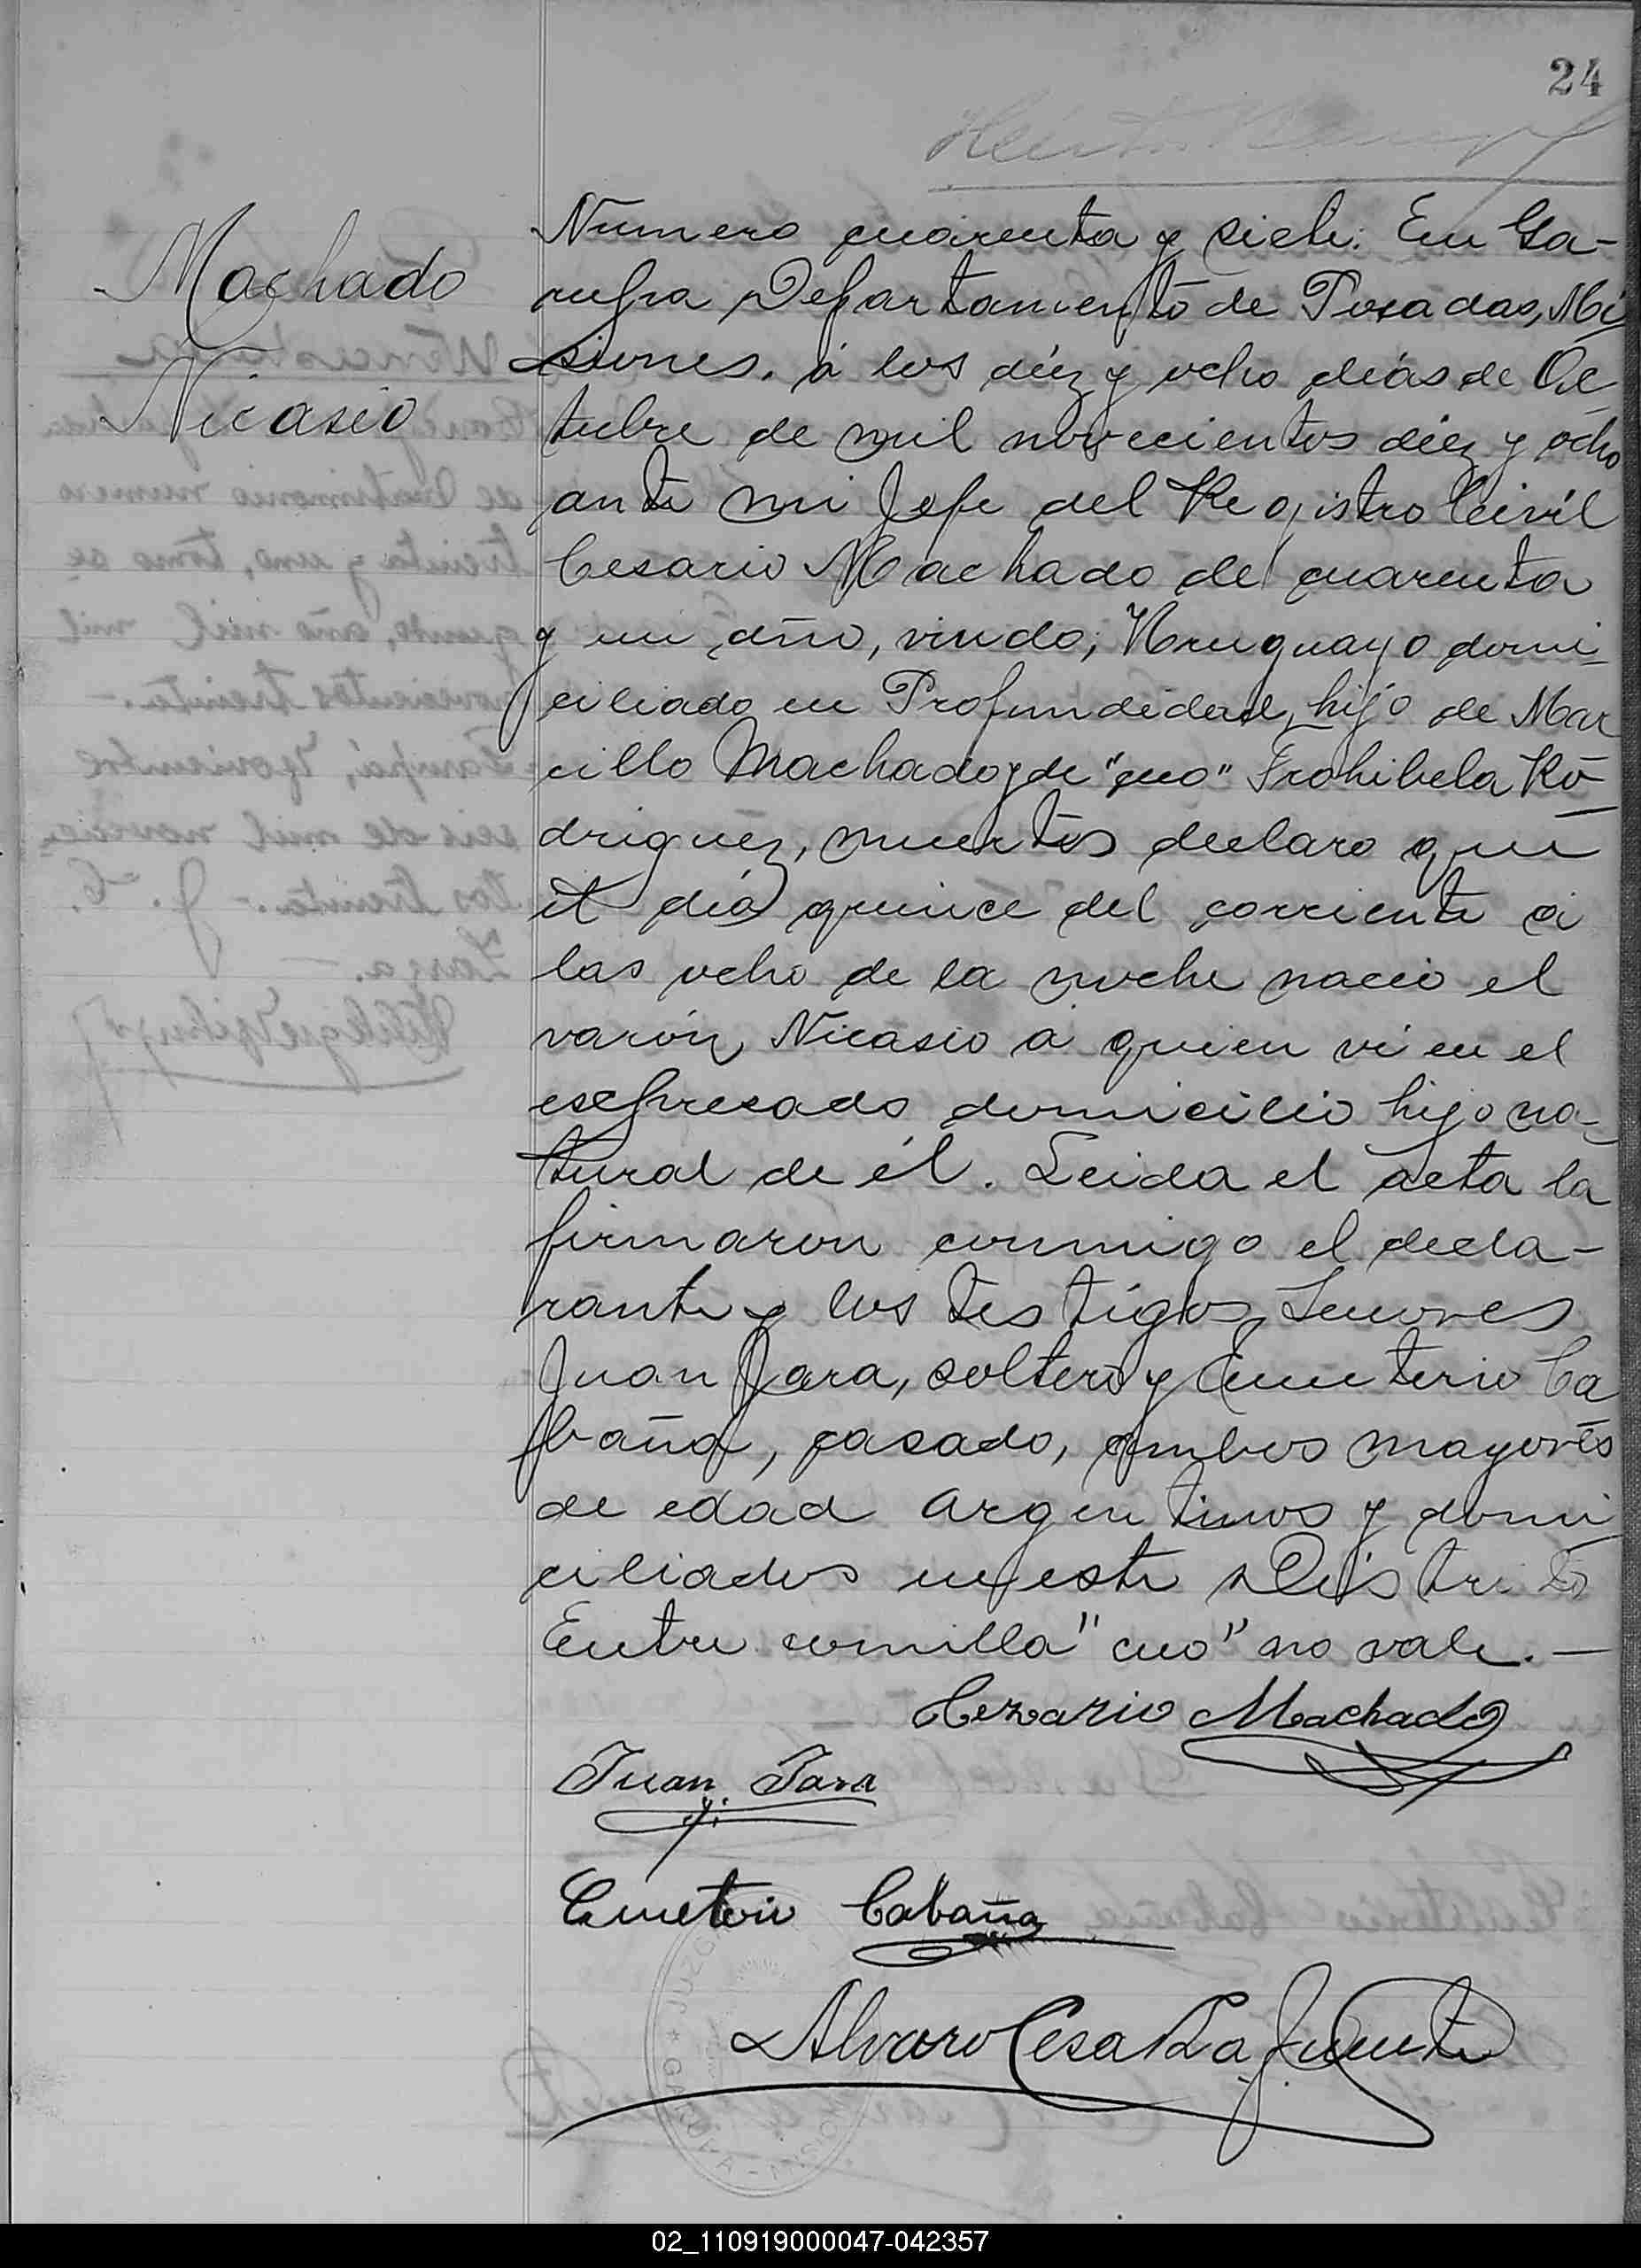 24
Machado
Nicasio
Número cuarenta y siete: En Ga-
rupa Departamento de Posadas, Mi
siones. á los diéz y ocho diás de Oc
tubre de mil novecientos diéz y ocho
ante mi Jefe del Registro Civíl
Cesario Machado de cuarenta
y un año, viudo, Uruguayo domi-
ciliado en Profundidad, hijo de Mar
cillo Machado y de "cuo" Frohibela Ro-
driguez, muertos declaro que
el diá quince del corriente á
las ocho de la noche nacio el
varón, Nicasio á quien ví en el
expresado domicilio hijo na-
tural de él. Leida el acta la
firmaron conmigo el decla-
rante y los testigos, Señores
Juan Jara, soltero y Emeterio Ca
baña, casado, ambos mayores
de edad argentinos y domi
ciliados en este Distrito
Entre comilla "cuo" no vale. —
Cezario Machado
Juan Jara
Emeterio Cabaña
Alvaro Cesar La Fuente
02_110919000047-042357